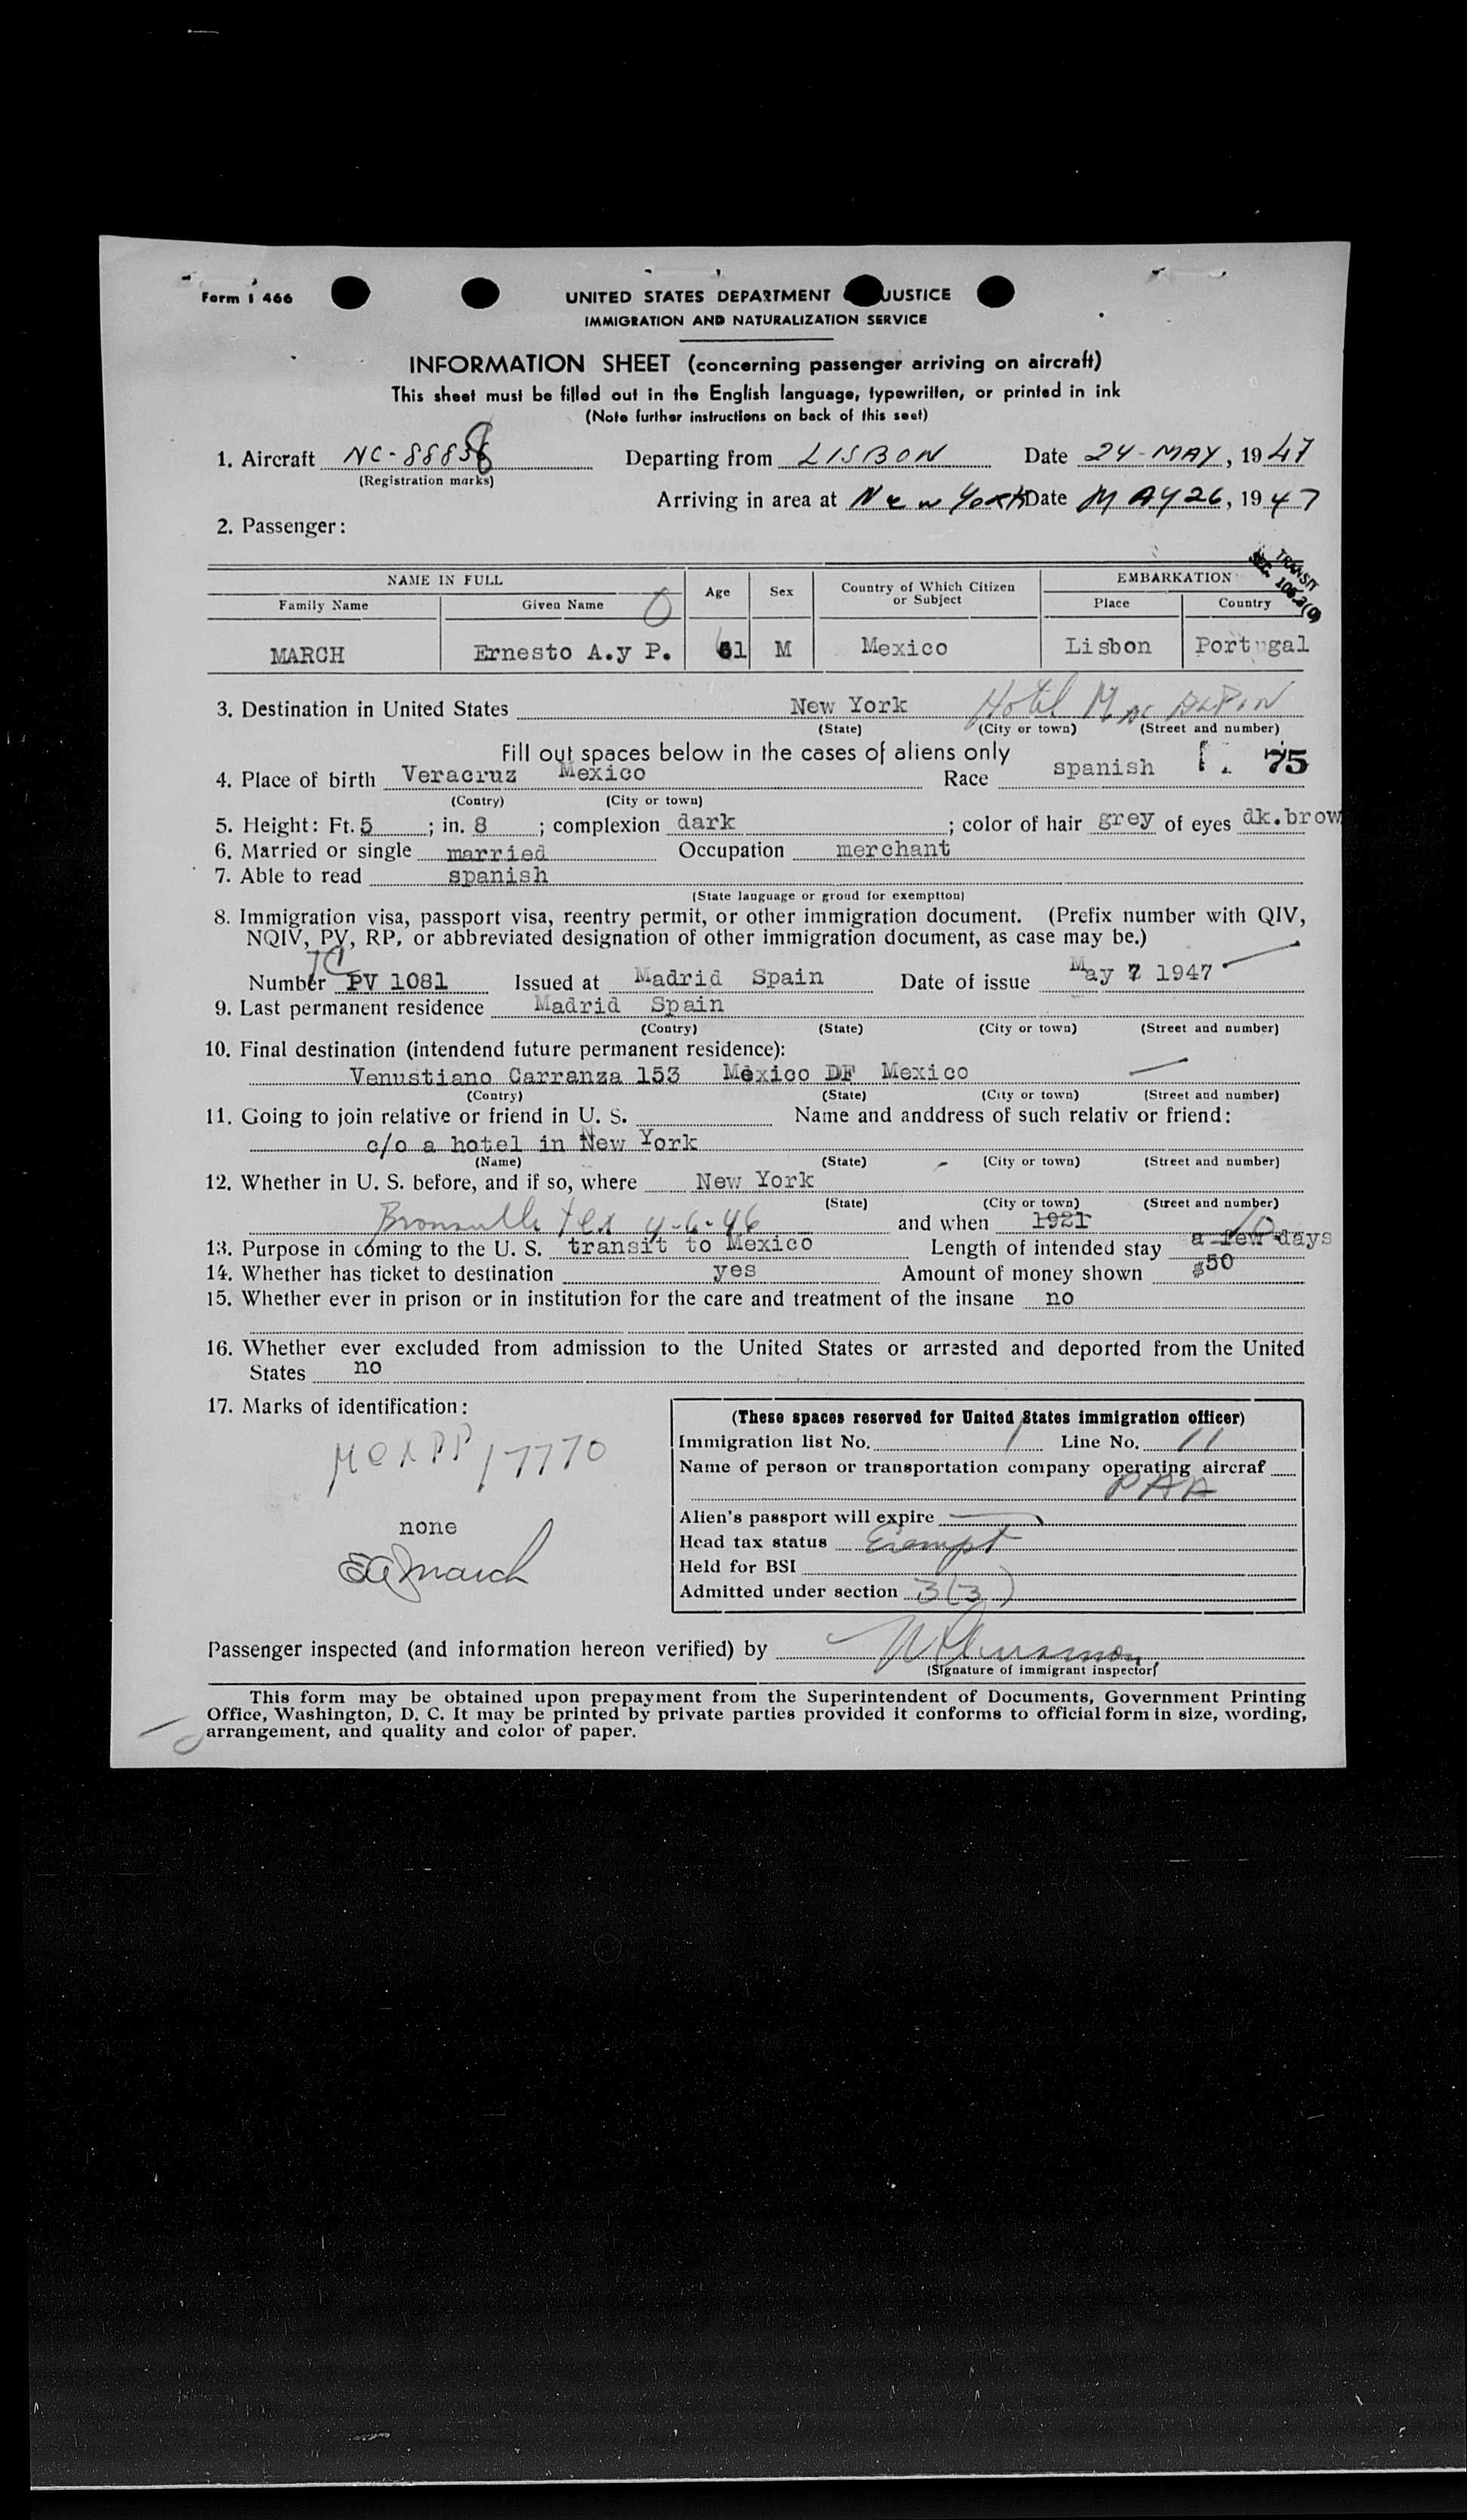 Form I 466
UNITED STATES DEPARTMENT JUSTICE
IMMIGRATION AND NATURALIZATION SERVICE
INFORMATION SHEET (concerning passenger arriving on aircraft)
This sheet must be filled out in the English language, typewritten, or printed in ink
(Note further instructions on back of this seet)
1. Aircraft NC-88858 Departing from LISBON Date 24-MAY, 1947
(Registration marks)
Arriving in area at New York Date MAY 26, 1947
2. Passenger:
TRANSIT
SEC. 105.3(0)
NAME IN FULL Age Sex Country of Which Citizen or Subject EMBARKATION
Family Name Given Name Place Country
MARCH Ernesto A.y P. 61 M Mexico Lisbon Portugal
3. Destination in United States New York Hotel Mac ALPIN
(State) (City or town) (Street and number)
Fill out spaces below in the cases of aliens only
4. Place of birth Veracruz Mexico Race spanish 75
(Contry) (City or town)
5. Height: Ft. 5 ; in. 8 ; complexion dark ; color of hair grey of eyes dk.brow
6. Married or single married Occupation merchant
7. Able to read spanish
(State language or groud for exemptton)
8. Immigration visa, passport visa, reentry permit, or other immigration document. (Prefix number with QIV,
NQIV, PV, RP, or abbreviated designation of other immigration document, as case may be.)
TC
Number PV 1081 Issued at Madrid Spain Date of issue May 7 1947
9. Last permanent residence Madrid Spain
(Contry) (State) (City or town) (Street and number)
10. Final destination (intendend future permanent residence):
Venustiano Carranza 153 México DF Mexico
(Contry) (State) (City or town) (Street and number)
11. Going to join relative or friend in U. S. Name and anddress of such relativ or friend:
c/o a hotel in New York
(Name) (State) (City or town) (Street and number)
12. Whether in U. S. before, and if so, where New York
(State) (City or town) (Street and number)
Bronsville Tex 4-6-46 and when 1921
13. Purpose in coming to the U. S. transit to Mexico Length of intended stay a few days 10
14. Whether has ticket to destination yes Amount of money shown $50
15. Whether ever in prison or in institution for the care and treatment of the insane no
16. Whether ever excluded from admission to the United States or arrested and deported from the United
States no
17. Marks of identification:
Mex PP 17770
none
EAMarch
(These spaces reserved for United States immigration officer)
Immigration list No. 1 Line No. 11
Name of person or transportation company operating aircraf
PAA
Alien's passport will expire
Head tax status Exempt
Held for BSI
Admitted under section 3(3)
Passenger inspected (and information hereon verified) by
(Signature of immigrant inspector)
This form may be obtained upon prepayment from the Superintendent of Documents, Government Printing
Office, Washington, D. C. It may be printed by private parties provided it conforms to official form in size, wording,
arrangement, and quality and color of paper.